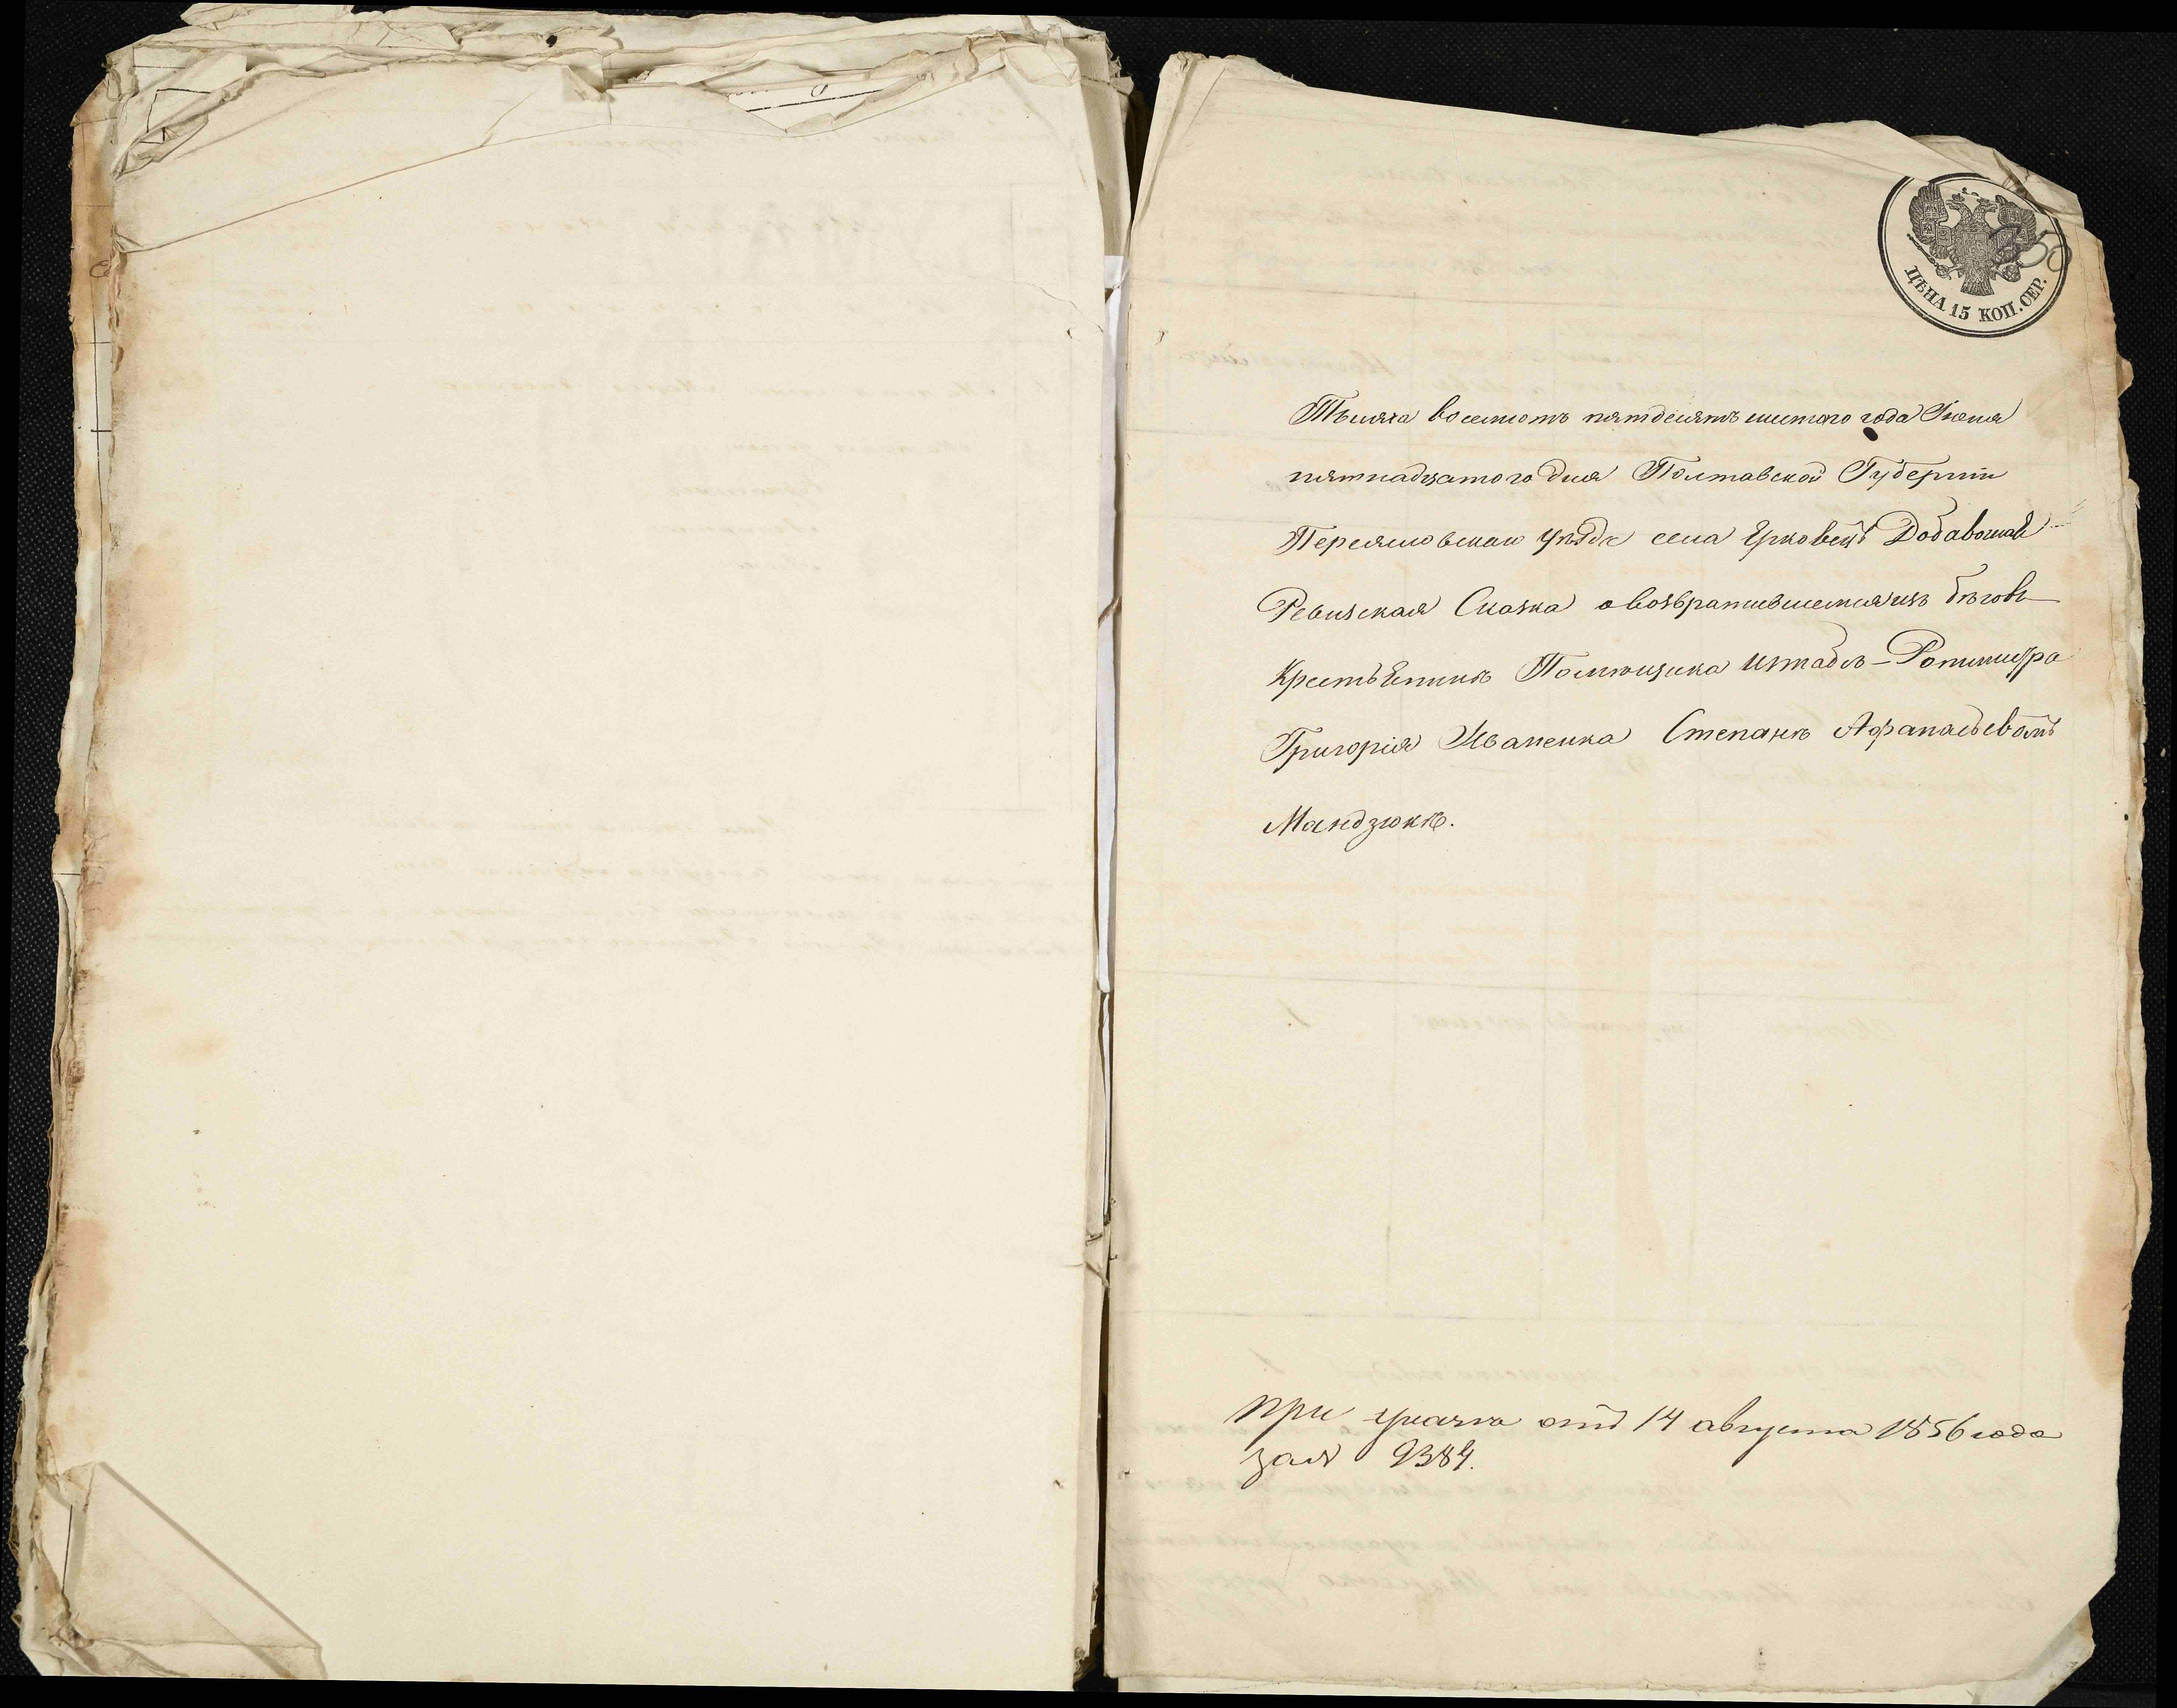 ЦѢНА 15 КОП. СЕР.
Тысяча восемсотъ пятдесятъ шестого года Іюня
пятнадцатого дня Полтавской Губерніи
Переясловскаго уѣзда села Ерковецъ Добавочная
Ревизская Сказка о возвратившемся изъ бѣговъ
Крестьянинѣ Помѣщика Штабсъ-Ротмистра
Григорія Иваненка Степанѣ Афанасьевомъ
Мандзюкѣ.
при указѣ отъ 14 августа 1856 года
за № 9384.